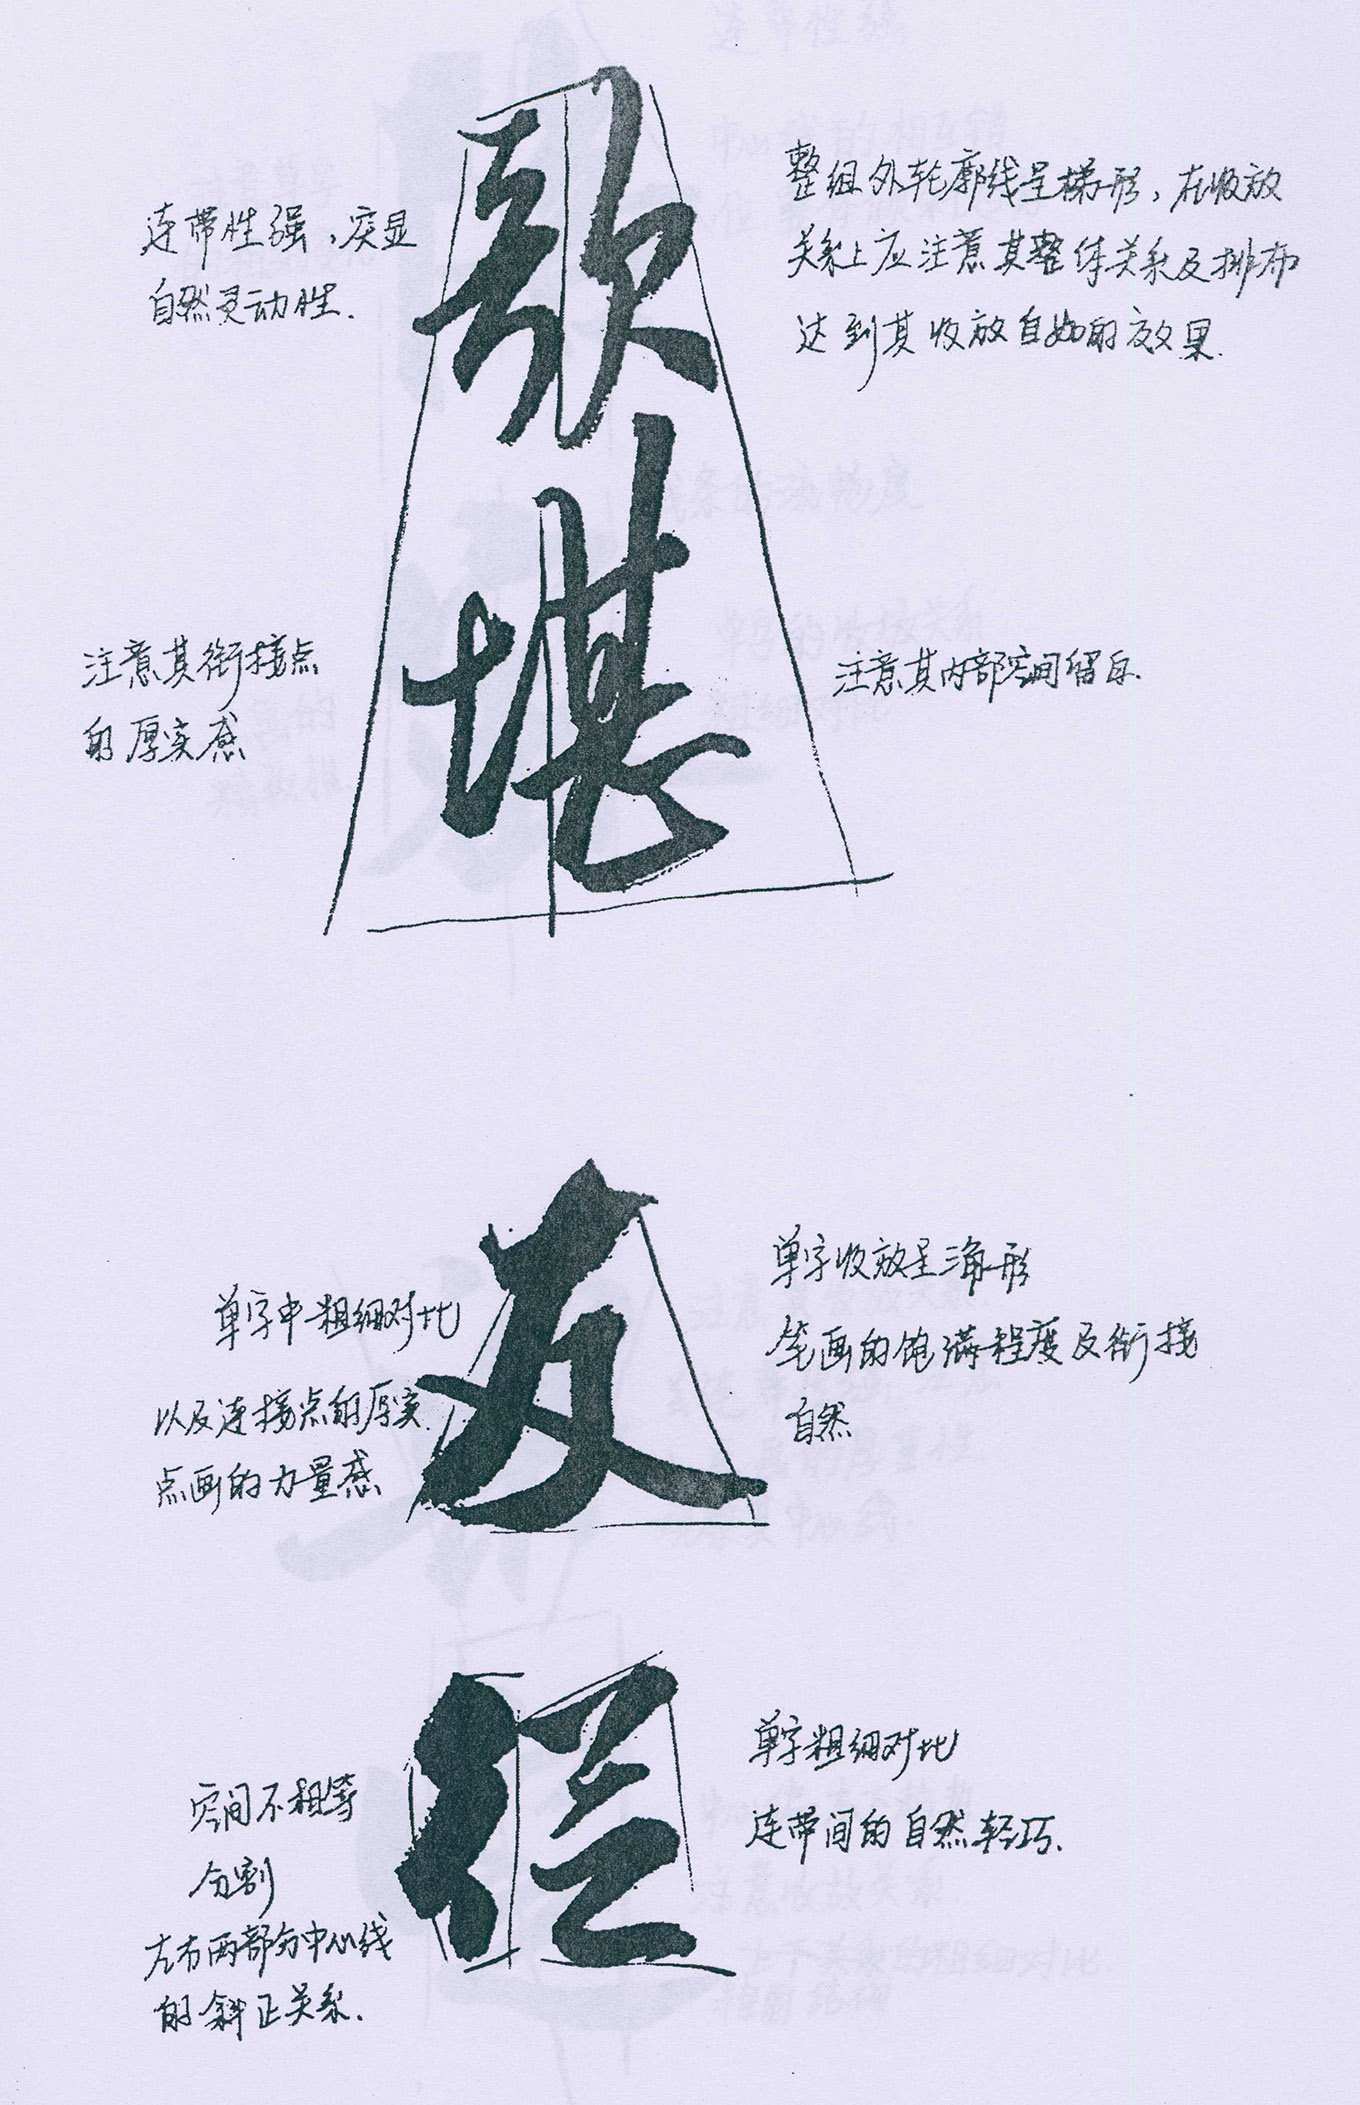 歌
连带性强，突显
自然灵动性.
整组外轮廓线呈梯形，在收放
关系上应注意其整体关系及排布
达到其收放自如的效果.
堪
注意其衔接点
的厚实感
注意其内部空间留白.
友
单字中粗细对比
以及连接点的厚实.
点画的力量感
单字收放呈三角形
笔画的饱满程度及衔接
自然
空间不相等
分割
左右两部分中心线
的斜正关系.
单字粗细对比
连带间的自然轻巧.